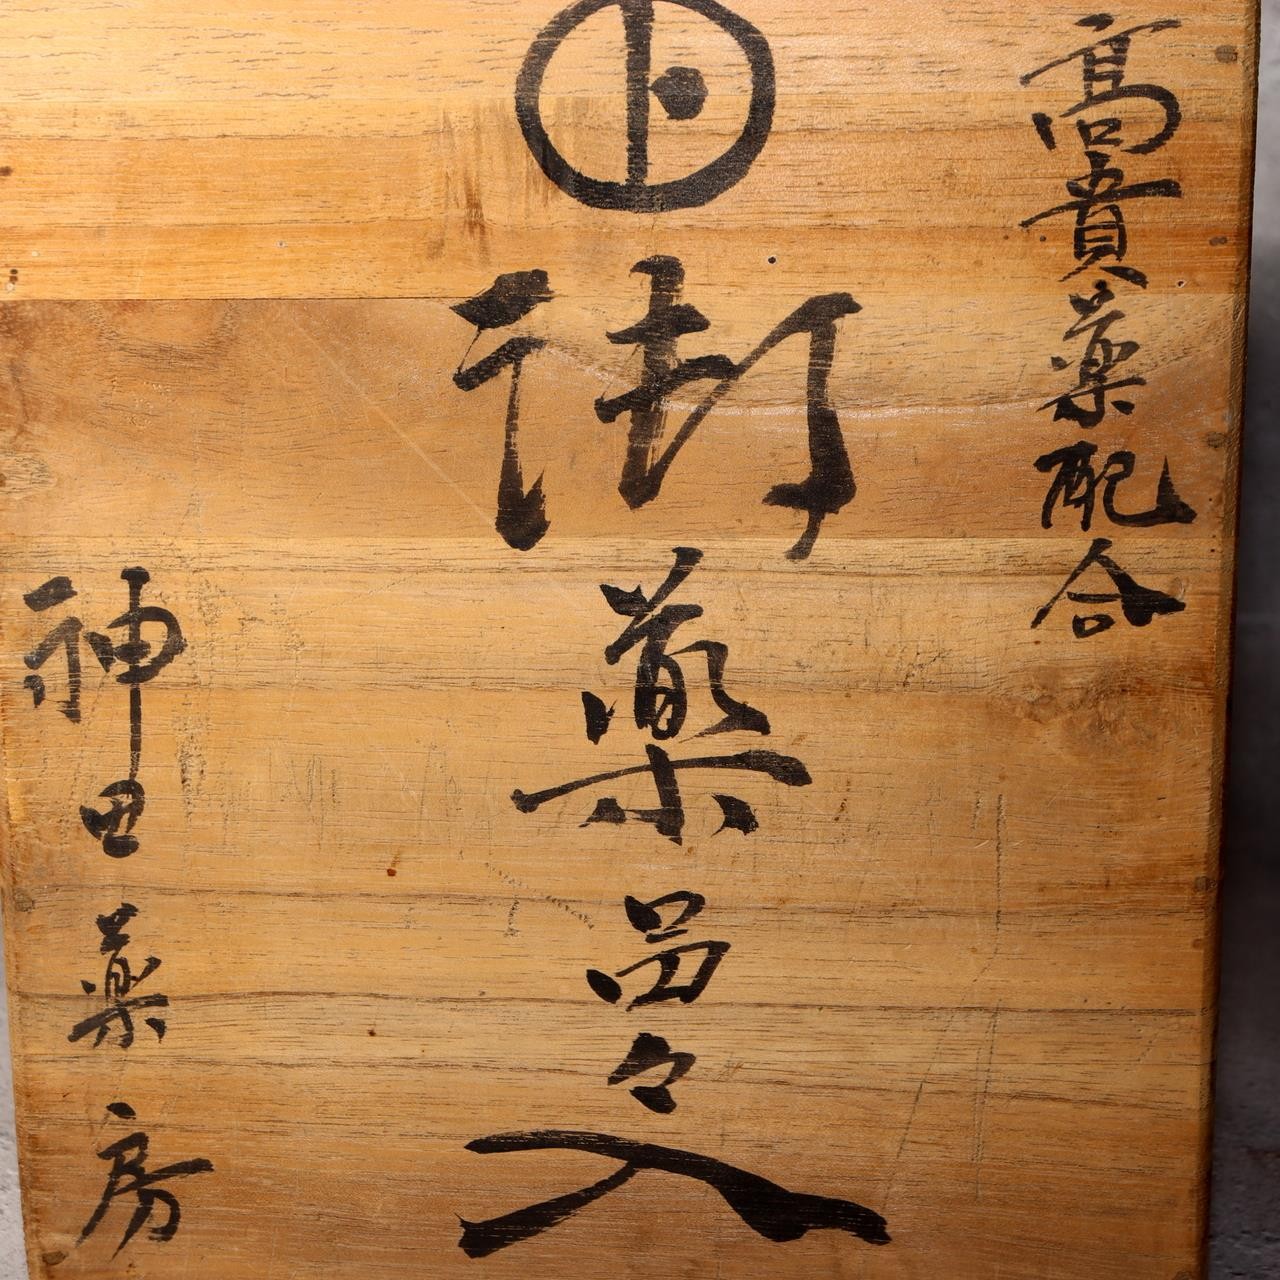 高貴薬配合
卜
御薬品々入
神田薬房